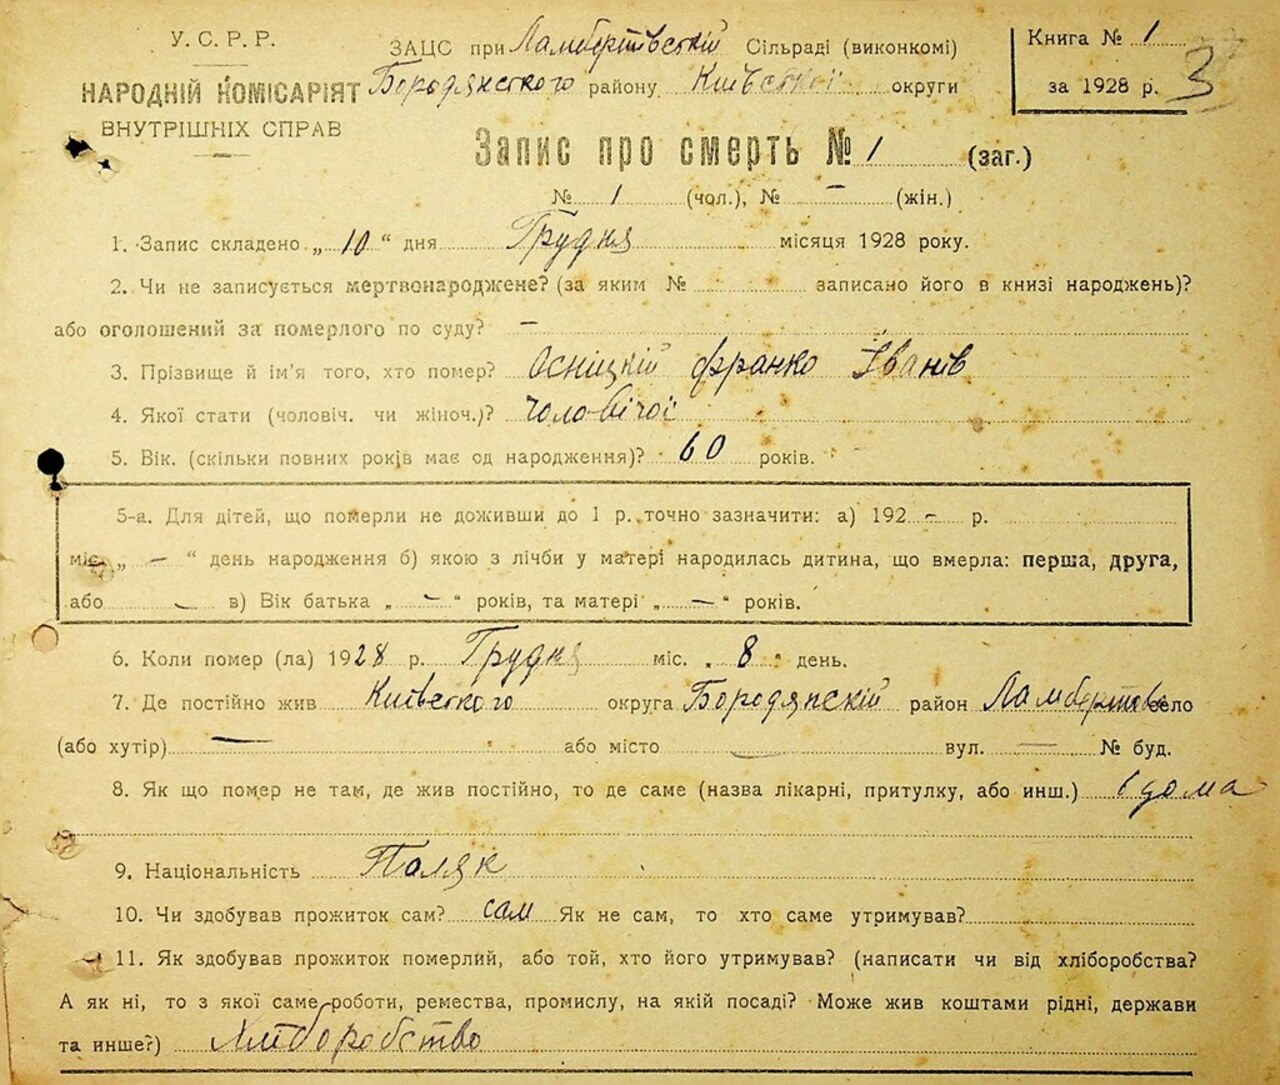 У. С. Р. Р.
НАРОДНІЙ КОМІСАРІЯТ
ВНУТРІШНІХ СПРАВ
ЗАЦС при Ламбертівскій Сільраді (виконкомі)
Бородянского району Київскої округи
Книга № 1
за 1928 р. 3
Запис про смерть № 1 (заг.)
№ 1 (чол.), № — (жін.)
1. Запис складено „ 10 “ дня Грудня місяця 1928 року.
2. Чи не записується мертвонароджене? (за яким № записано його в книзі народжень)?
або оголошений за померлого по суду? —
3. Прізвище й ім'я того, хто помер? Осніцкій Франко Іванів
4. Якої стати (чоловіч. чи жіноч.)? чоловічої
5. Вік. (скільки повних років має од народження)? 60 років.
5-а. Для дітей, що померли не доживши до 1 р. точно зазначити: а) 192 - р.
міс. „ — “ день народження б) якою з лічби у матері народилась дитина, що вмерла: перша, друга,
або — в) Вік батька „ — “ років, та матері „ — “ років.
6. Коли помер (ла) 1928 р. Грудня міс. „ 8 “ день.
7. Де постійно жив Київского округа Бородянскій район Ламбертове село
(або хутір) — або місто — вул. — № буд.
8. Як що помер не там, де жив постійно, то де саме (назва лікарні, притулку, або инш.) в дома
9. Національність Поляк
10. Чи здобував прожиток сам? сам Як не сам, то хто саме утримував?
11. Як здобував прожиток померлий, або той, хто його утримував? (написати чи від хліборобства?
А як ні, то з якої саме роботи, ремества, промислу, на якій посаді? Може жив коштами рідні, держави
та инше?) Хліборобство